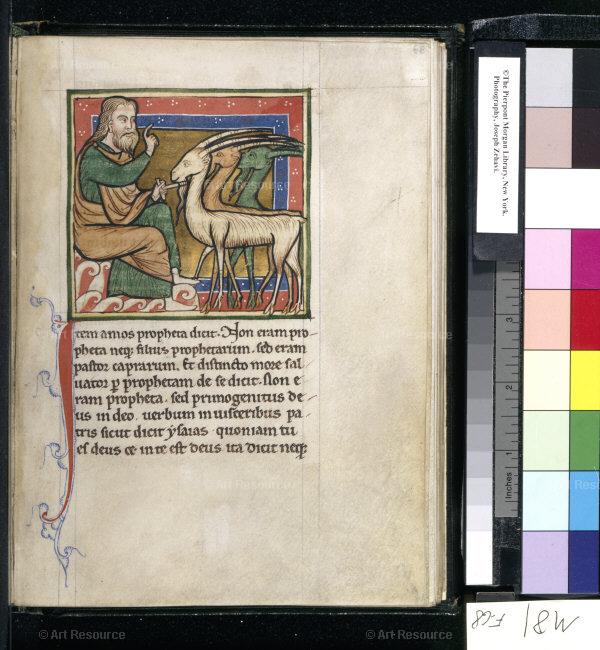 68
Item amos propheta dicit. Non eram pro-
pheta neq; filius prophetarum. sed eram
pastor caprarum. Et distincto more sal-
uator p prophetam de se dicit. Non e-
ram propheta. sed primogenitus de-
us in deo. uerbum in uisceribus pa-
tris sicut dicit ysaias. quoniam tu
es deus & in te est deus. ita dicit neq;
©The Pierpont Morgan Library, New York.
Photography, Joseph Zehavi.
3
2
1
Inches
M81 F.68
© Art Resource
© Art Resource